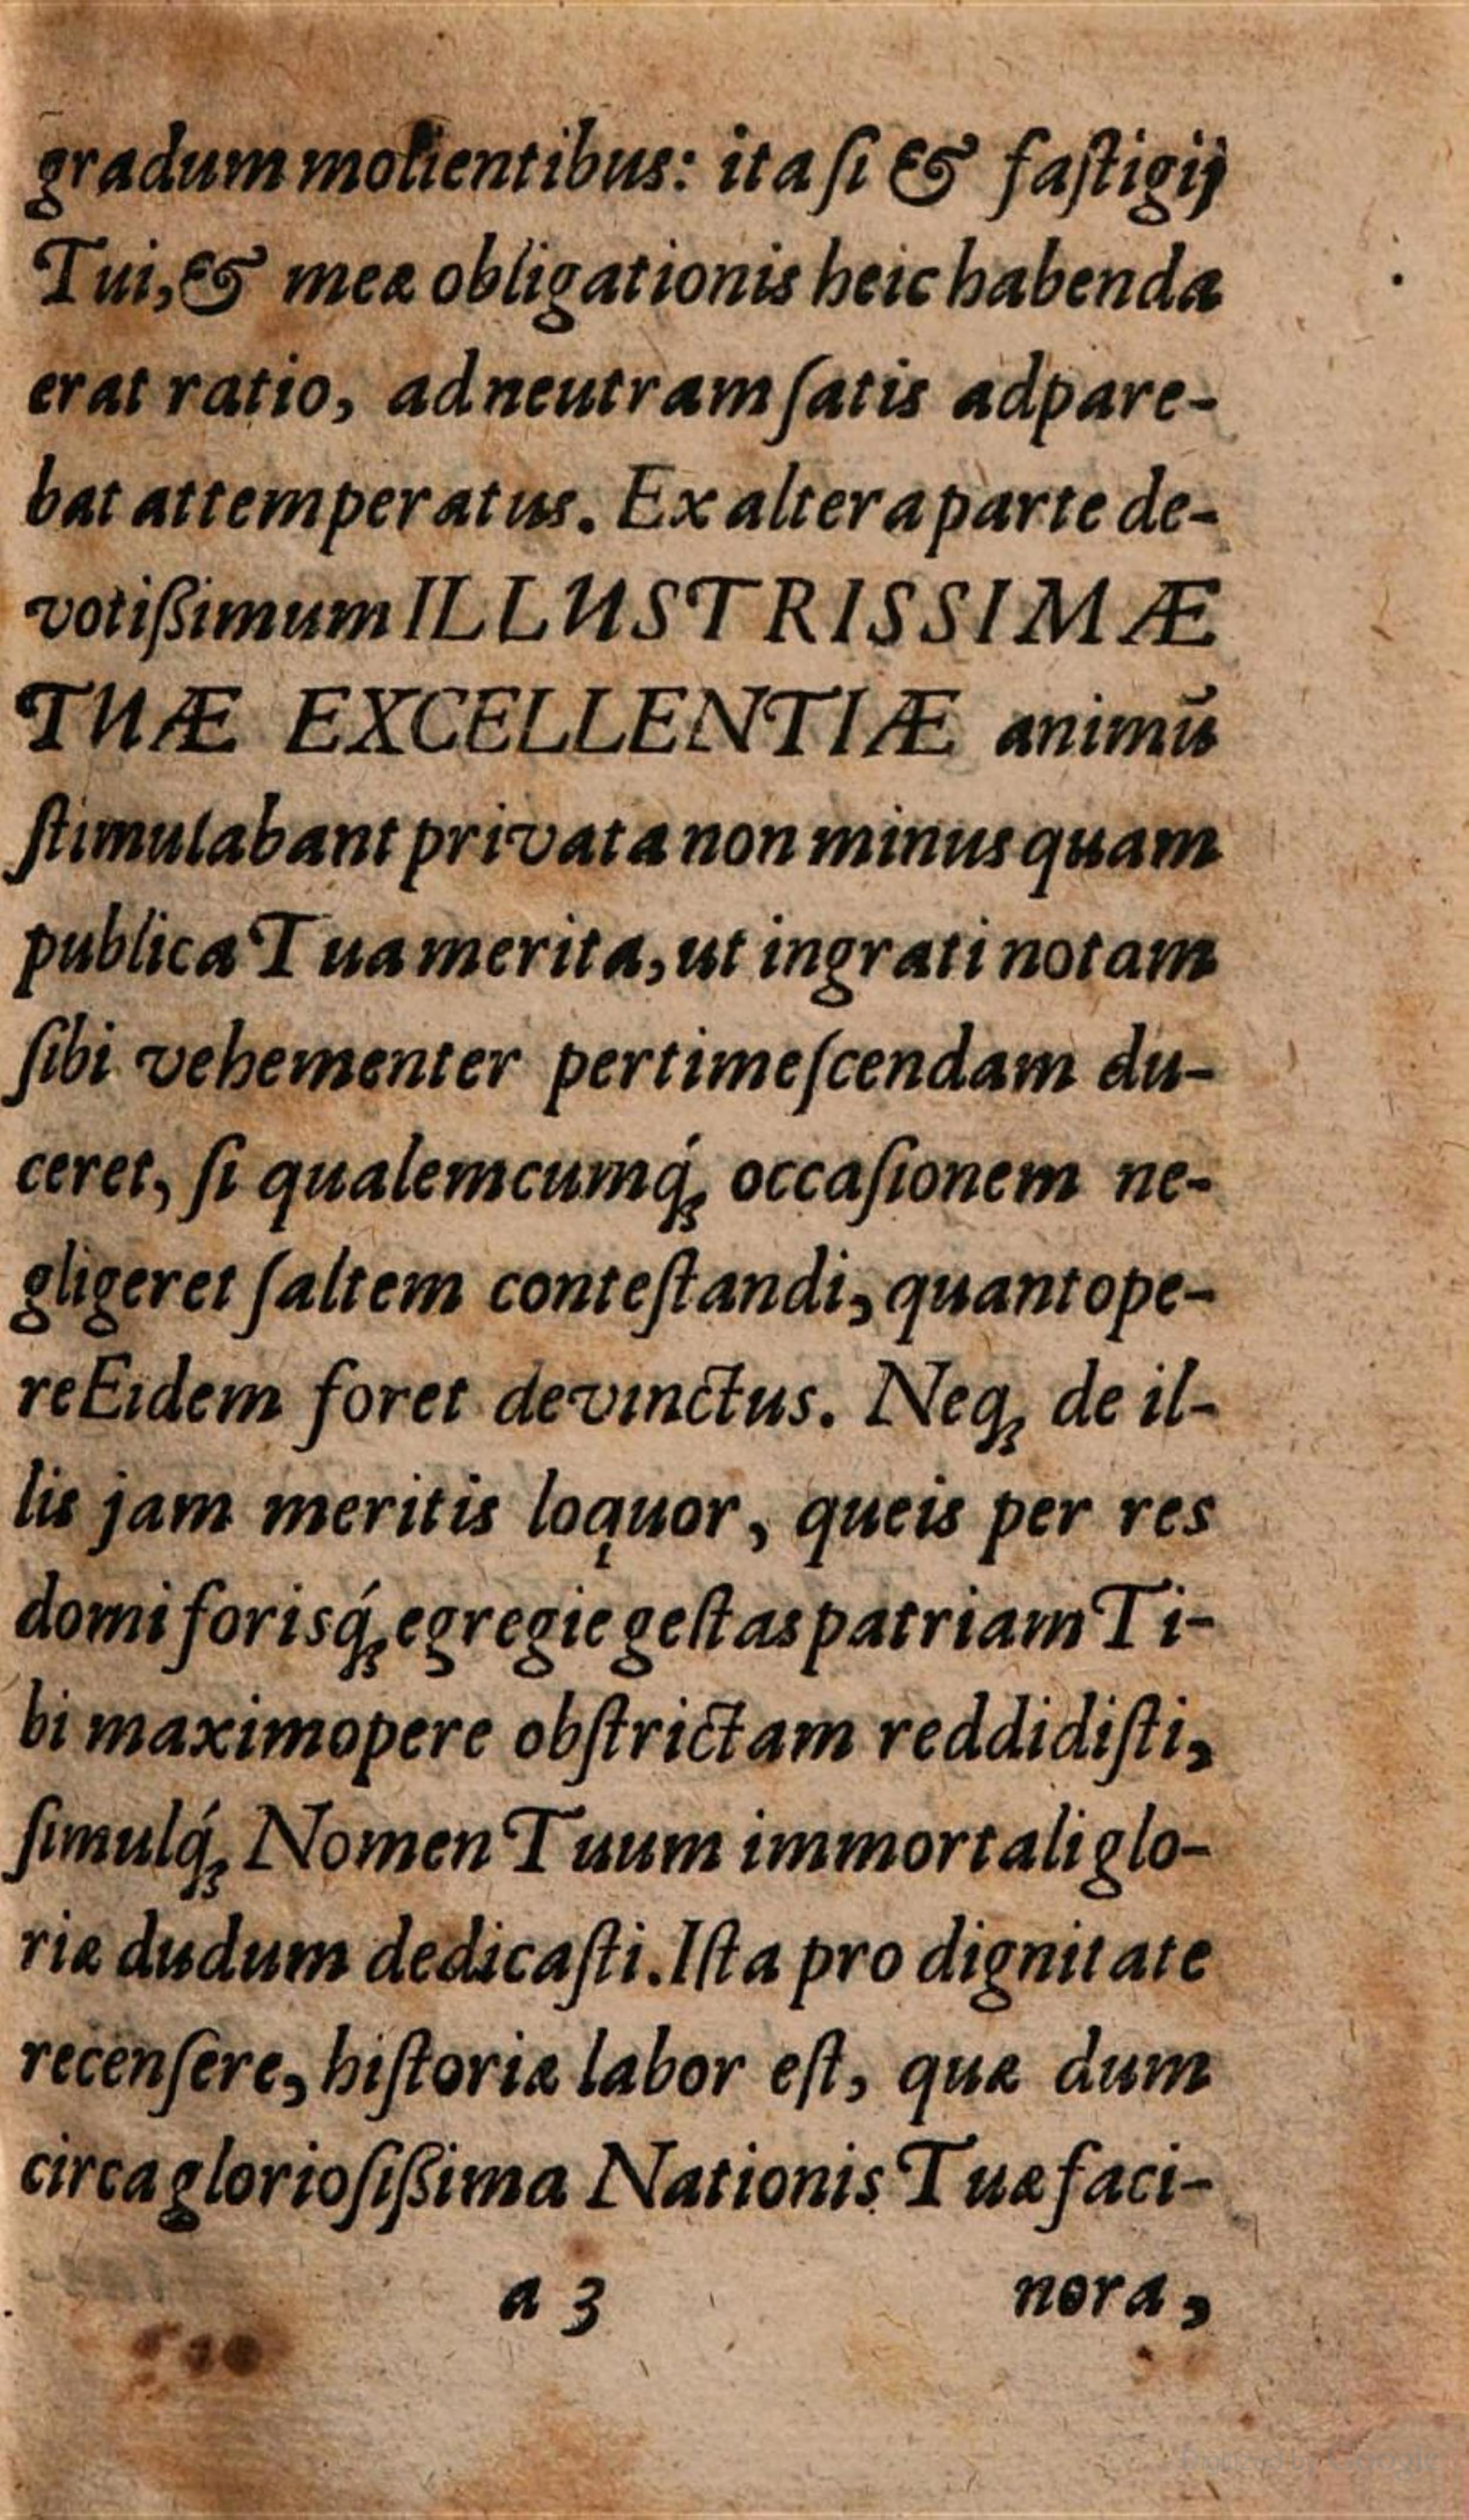 gradum molientibus: ita ſi & faſtigij
Tui, & meæ obligationis heic habenda
erat ratio, ad neutram ſatis adpare-
bat attemperatus. Ex altera parte de-
votiſſimum ILLUSTRISSIMÆ
TUÆ EXCELLENTIÆ animū
ſtimulabant privata non minus quam
publica Tua merita, ut ingrati notam
ſibi vehementer pertimeſcendam du-
ceret, ſi qualemcumq́; occaſionem ne-
gligeret ſaltem conteſtandi, quantope-
re Eidem foret devinctus. Neq; de il-
lis jam meritis loquor, queis per res
domi forisq́; egregie geſtas patriam Ti-
bi maximopere obſtrictam reddidiſti,
ſimulq́; Nomen Tuum immortali glo-
riæ dudum dedicaſti. Iſta pro dignitate
recenſere, hiſtoriæ labor eſt, quæ dum
circa glorioſiſſima Nationis Tuæ faci-
a 3 nora,